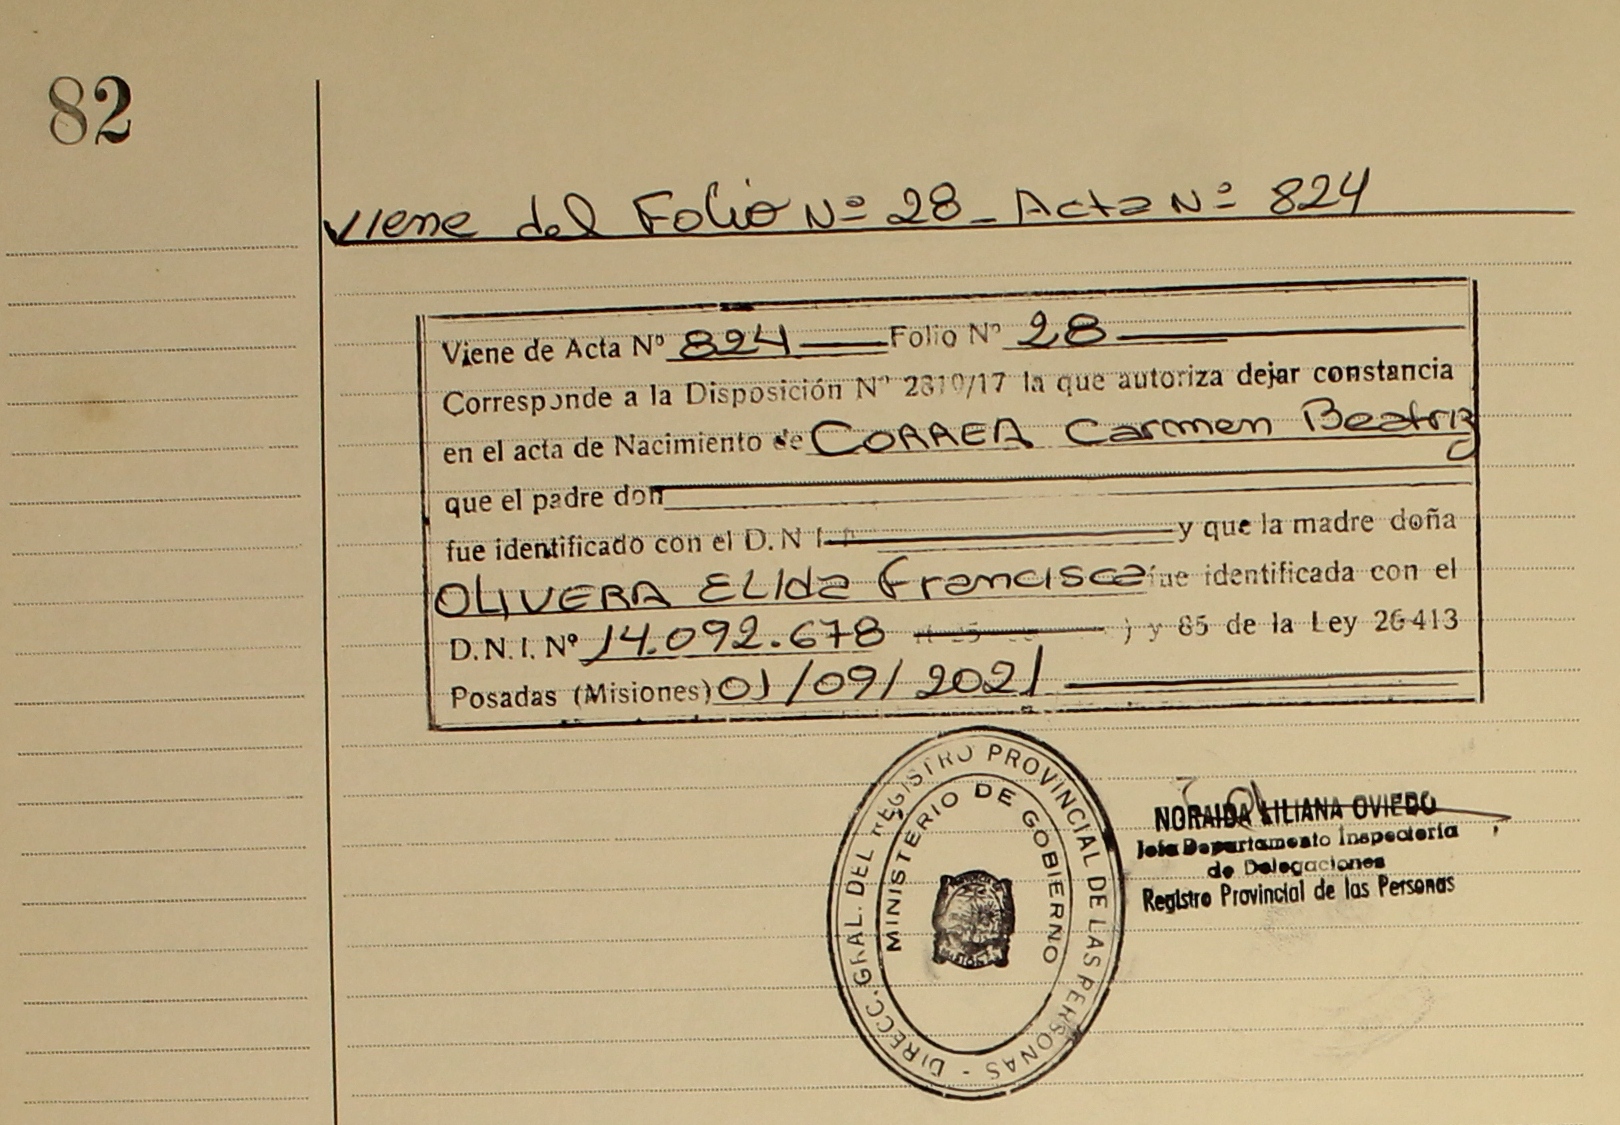 82
Viene del Folio Nº 28 - Acta Nº 824
Viene de Acta Nº 824 Folio Nº 28
Corresponde a la Disposición Nº 2810/17 la que autoriza dejar constancia
en el acta de Nacimiento de CORREA Carmen Beatriz
que el padre don
fue identificado con el D.N.I. y que la madre doña
OLIVERA ELIda Francisca fue identificada con el
D.N.I. Nº 14.092.678 ) y 85 de la Ley 26413
Posadas (Misiones) 01/09/2021
DIRECC. GRAL. DEL REGISTRO PROVINCIAL DE LAS PERSONAS -
MINISTERIO DE GOBIERNO
MISIONES
NORAIDA LILIANA OVIEDO
Jefa Departamento Inspectoría
de Delegaciones
Registro Provincial de las Personas